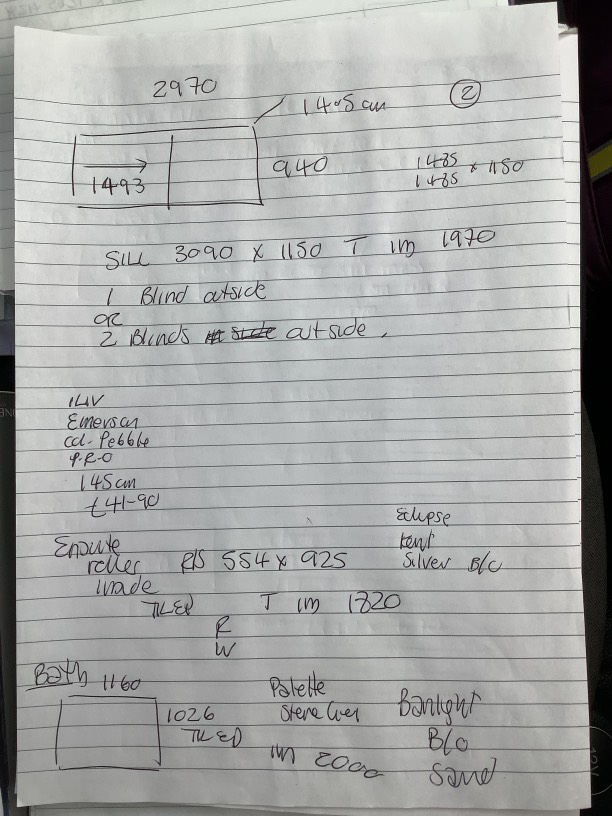 2970
14.5cm
2
1493
940
1485
1485 x 1150
SILL 3090 x 1150 T im 1970
1 Blind outside
or
2 Blinds outside.
Emerson
col- Pebble
P.R.O
145cm
£41-90
Eclipse
Kent
Silver B/O
Ensuite
roller R/S 554 x 925
inside
TILED T im 1820
R
W
Bath 1160
1026
TILED
Palette
im 2000
Banlight
B/O
Sand